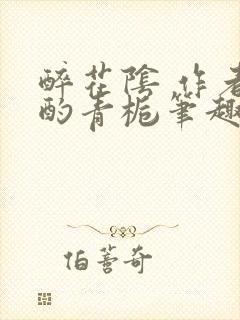 醉花陰 作者
酌青梔筆趣
伯蓄奇